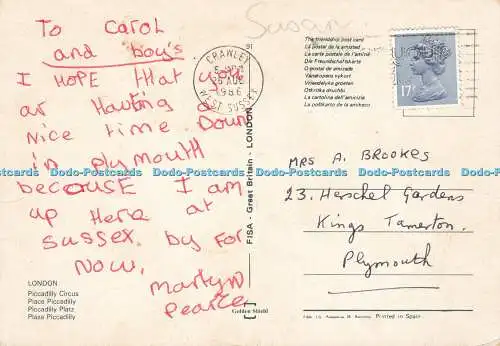 To Carol
and boy's
I HOPE that you
ar Hauting a
Nice time Down
in plymouth
becausE I am
up Here at
Sussex. by For
Now.
Martyn
Pearce
LONDON
Piccadilly Circus
Place Piccadilly
Piccadilly Platz
Plaza Piccadilly
Susan
CRAWLEY
1986
WEST SUSSEX
91
FISA - Great Britain - LONDON
Golden Shield
The friendship post card
La postal de la amistad
La carte postale de l'amitié
Die Freundschaftskarte
O postal de amizade
Vriendelijke groeten
La cartolina dell'amicizia
17P
MRS A. BROOKES
23. Herschel Gardens
Kings Tamerton.
Plymouth
Printed in Spain
Dodo-Postcards Dodo-Postcards Dodo-Postcards Dodo-Postcards Dodo-Postcards